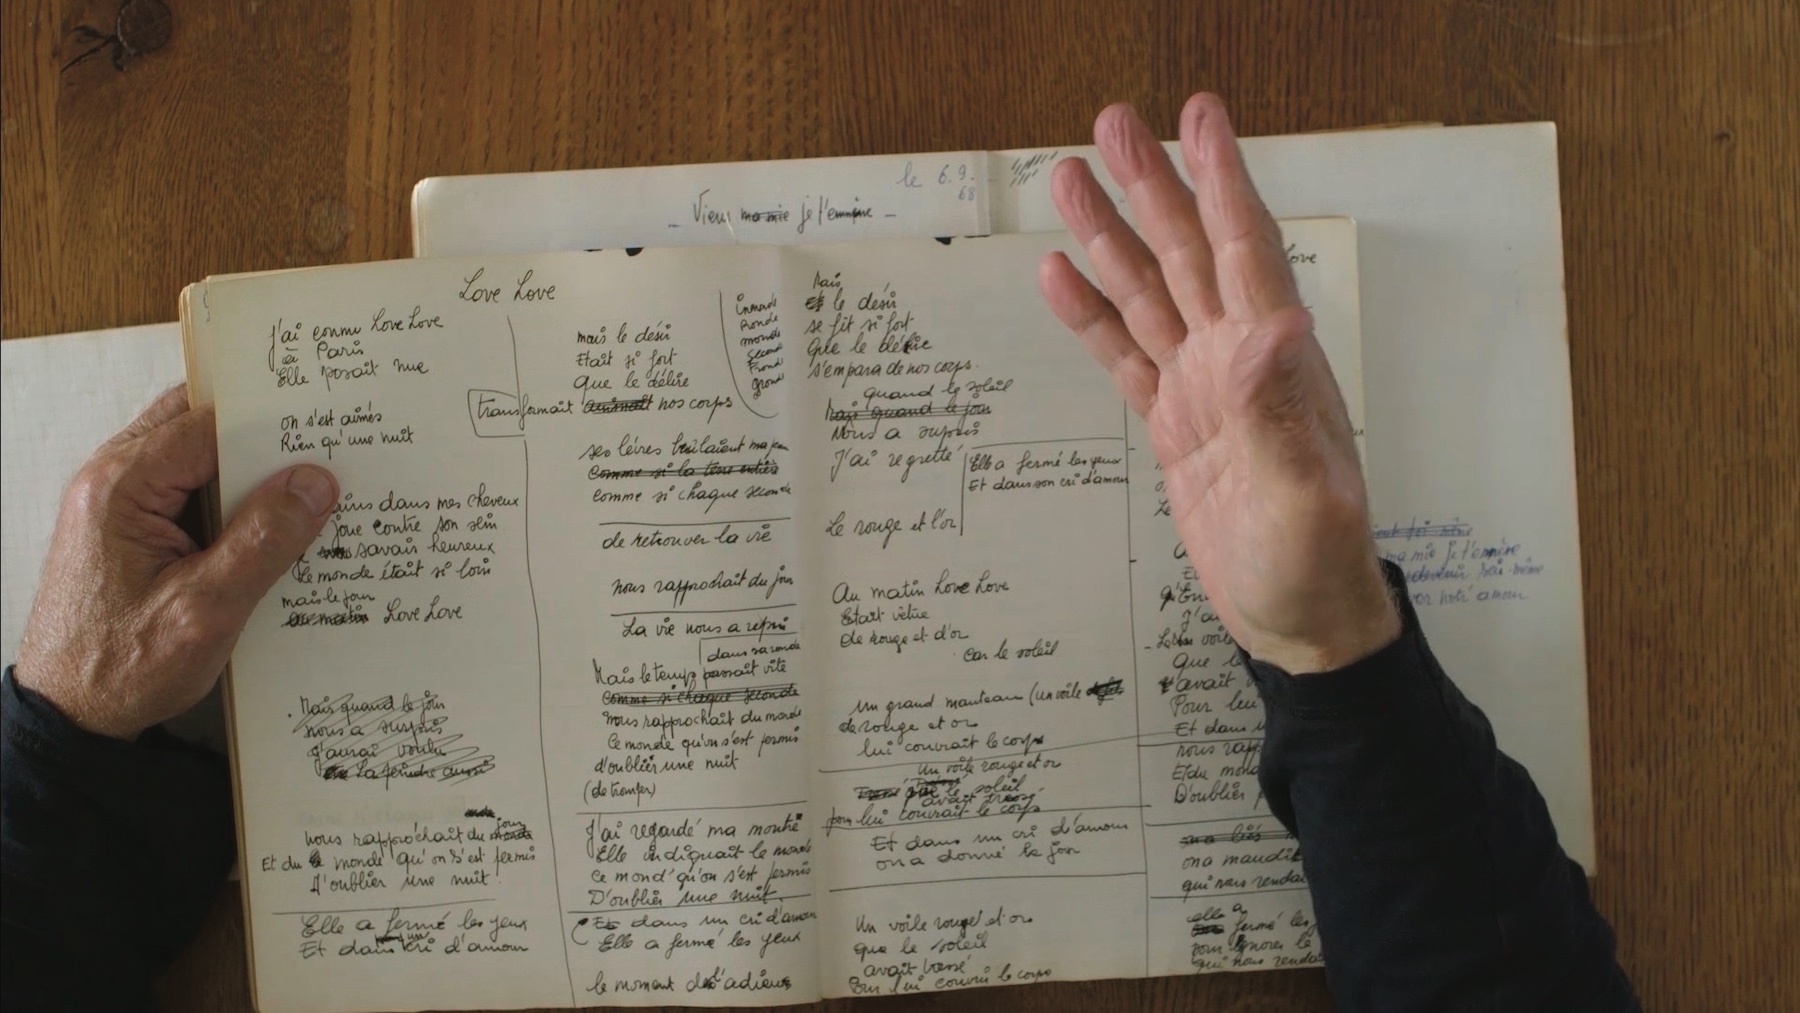 le 6.9.
68
_ Viens ma mie je t'emmène _
Love Love
J'ai connu Love Love
à Paris
Elle posait nue
on s'est aimés
Rien qu'une nuit
dans mes cheveux
joue contre son sein
savais heureux
Le monde était si loin
mais le jour
au matin Love Love
Mais quand le jour
nous a surpris
J'aurai voulu
La peindre aussi
jour
nous rapprochait du monde
Et du monde qu'on s'est permis
D'oublier une nuit.
Elle a fermé les yeux
Et dans un cri d'amour
mais le désir
Etait si fort
que le délire
transformait animait nos corps
ses lèvres brûlaient ma peau
Comme si la terre entière
comme si chaque seconde
de retrouver la vie
nous rapprochait du jour
La vie nous a repris
dans sa ronde
Mais le temps passait vite
Comme si chaque seconde
nous rapprochait du monde
Ce monde qu'on s'est permis
d'oublier une nuit
(de tromper)
J'ai regardé ma montre
Elle indiquait le monde
Ce mond' qu'on s'est permis
D'oublier une nuit.
Et dans un cri d'amour
Elle a fermé les yeux
le moment des adieux
immonde
Ronde
monde
Second
Frond
grond
Mais
le désir
se fit si fort
Que le délire
s'empara de nos corps.
quand le soleil
Mais quand le jour
Nous a surpris
J'ai regretté
Elle a fermé les yeux
Et dans son cri d'amour
Le rouge et l'or
Au matin Love Love
Etait vêtue
de rouge et d'or
Car le soleil
un grand manteau (un voile
de rouge et or
lui couvrait le corps
Un voile rouge et or
que le soleil
avait tressé
pour lui couvrir le corps
Et dans un cri d'amour
on a donné le jour
Un voile rouge et or
que le soleil
avait tressé
Pour lui couvrir le corps
ove
Le
J'au
que le
avait
Pour lui
Et dans u
nous rapp
Et du mond
D'oublier
on a maudit
qui nous rendai
elle a
fermé les
pour ignorer le
qui nous rendai
ma mie je t'emmène
devenir soi-même
notr' amour